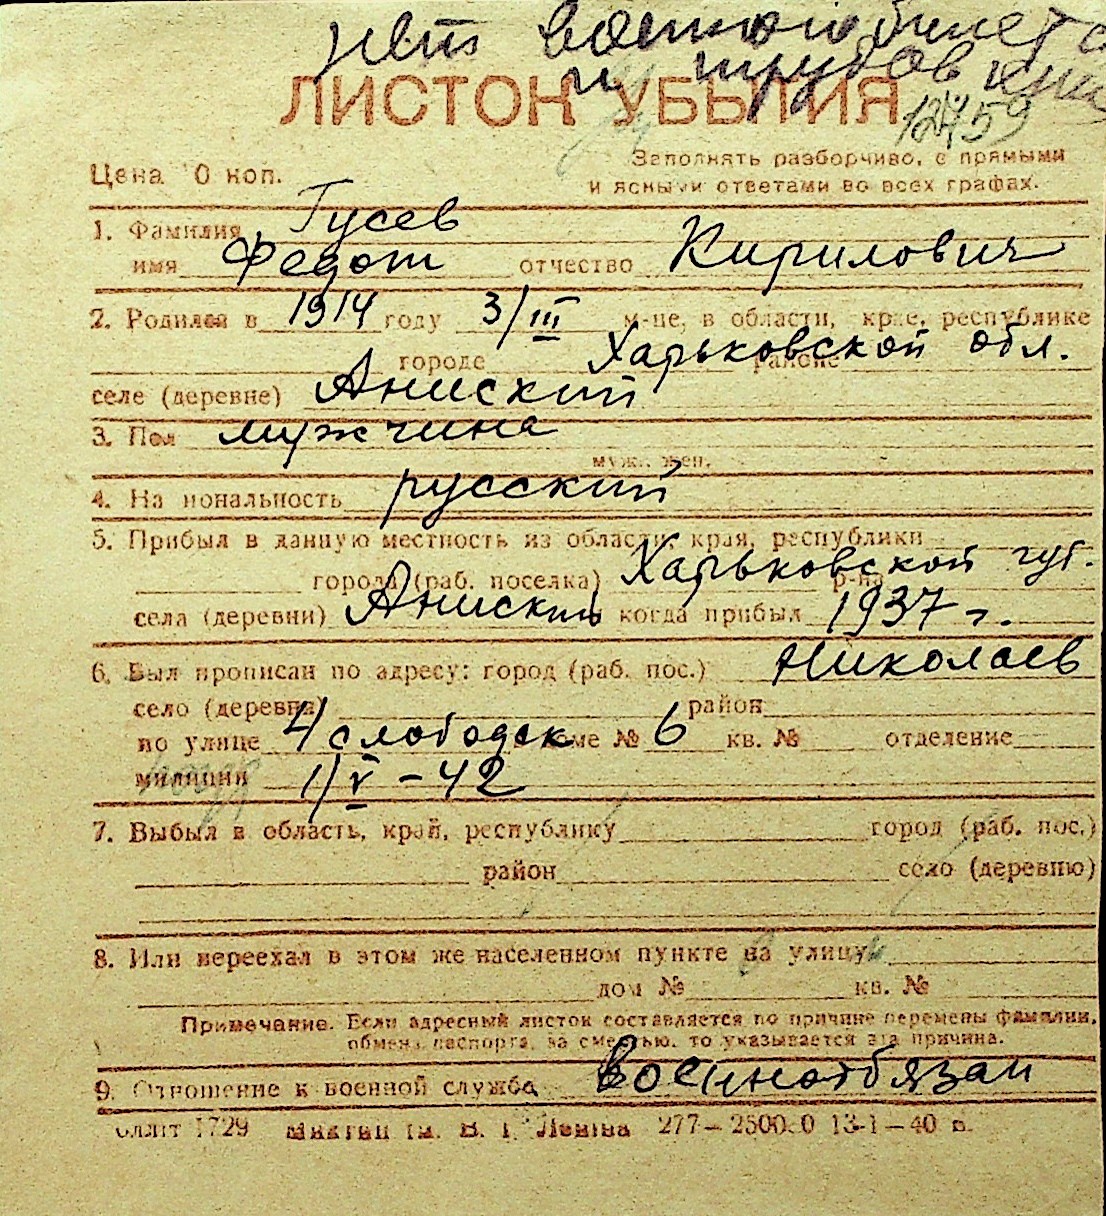 нет военного билета
и трудов книж
ЛИСТОК УБЫТИЯ
12459
Цена 10 коп.
Заполнять разборчиво, с прямыми
и ясными ответами во всех графах.
1. Фамилия Гусев
имя Федот отчество Кирилович
2. Родился в 1914 году 3/III м-це, в области, крае, республике
Харьковской обл.
городе районе
селе (деревне) Аниский
3. Пол мужчина
муж., жен.
4. Национальность русский
5. Прибыл в данную местность из области, края, республики
Харьковской губ.
города (раб. поселка) р-на
села (деревни) Аниский когда прибыл 1937 г.
6. Был прописан по адресу: город (раб. пос.) Николаев
село (деревня) район
по улице 4 слободск доме № 6 кв. № отделение
милиции 1/V-42
7. Выбыл в область, край, республику город (раб. пос.)
район село (деревню)
8. Или переехал в этом же населенном пункте на улицу
дом № кв. №
Примечание. Если адресный листок составляется по причине перемены фамилии,
обмена паспорта, за смертью, то указывается эта причина.
9. Отношение к военной службе Военнообязан
1729 им. В. І. Леніна 277—2500.0 13-1—40 в.